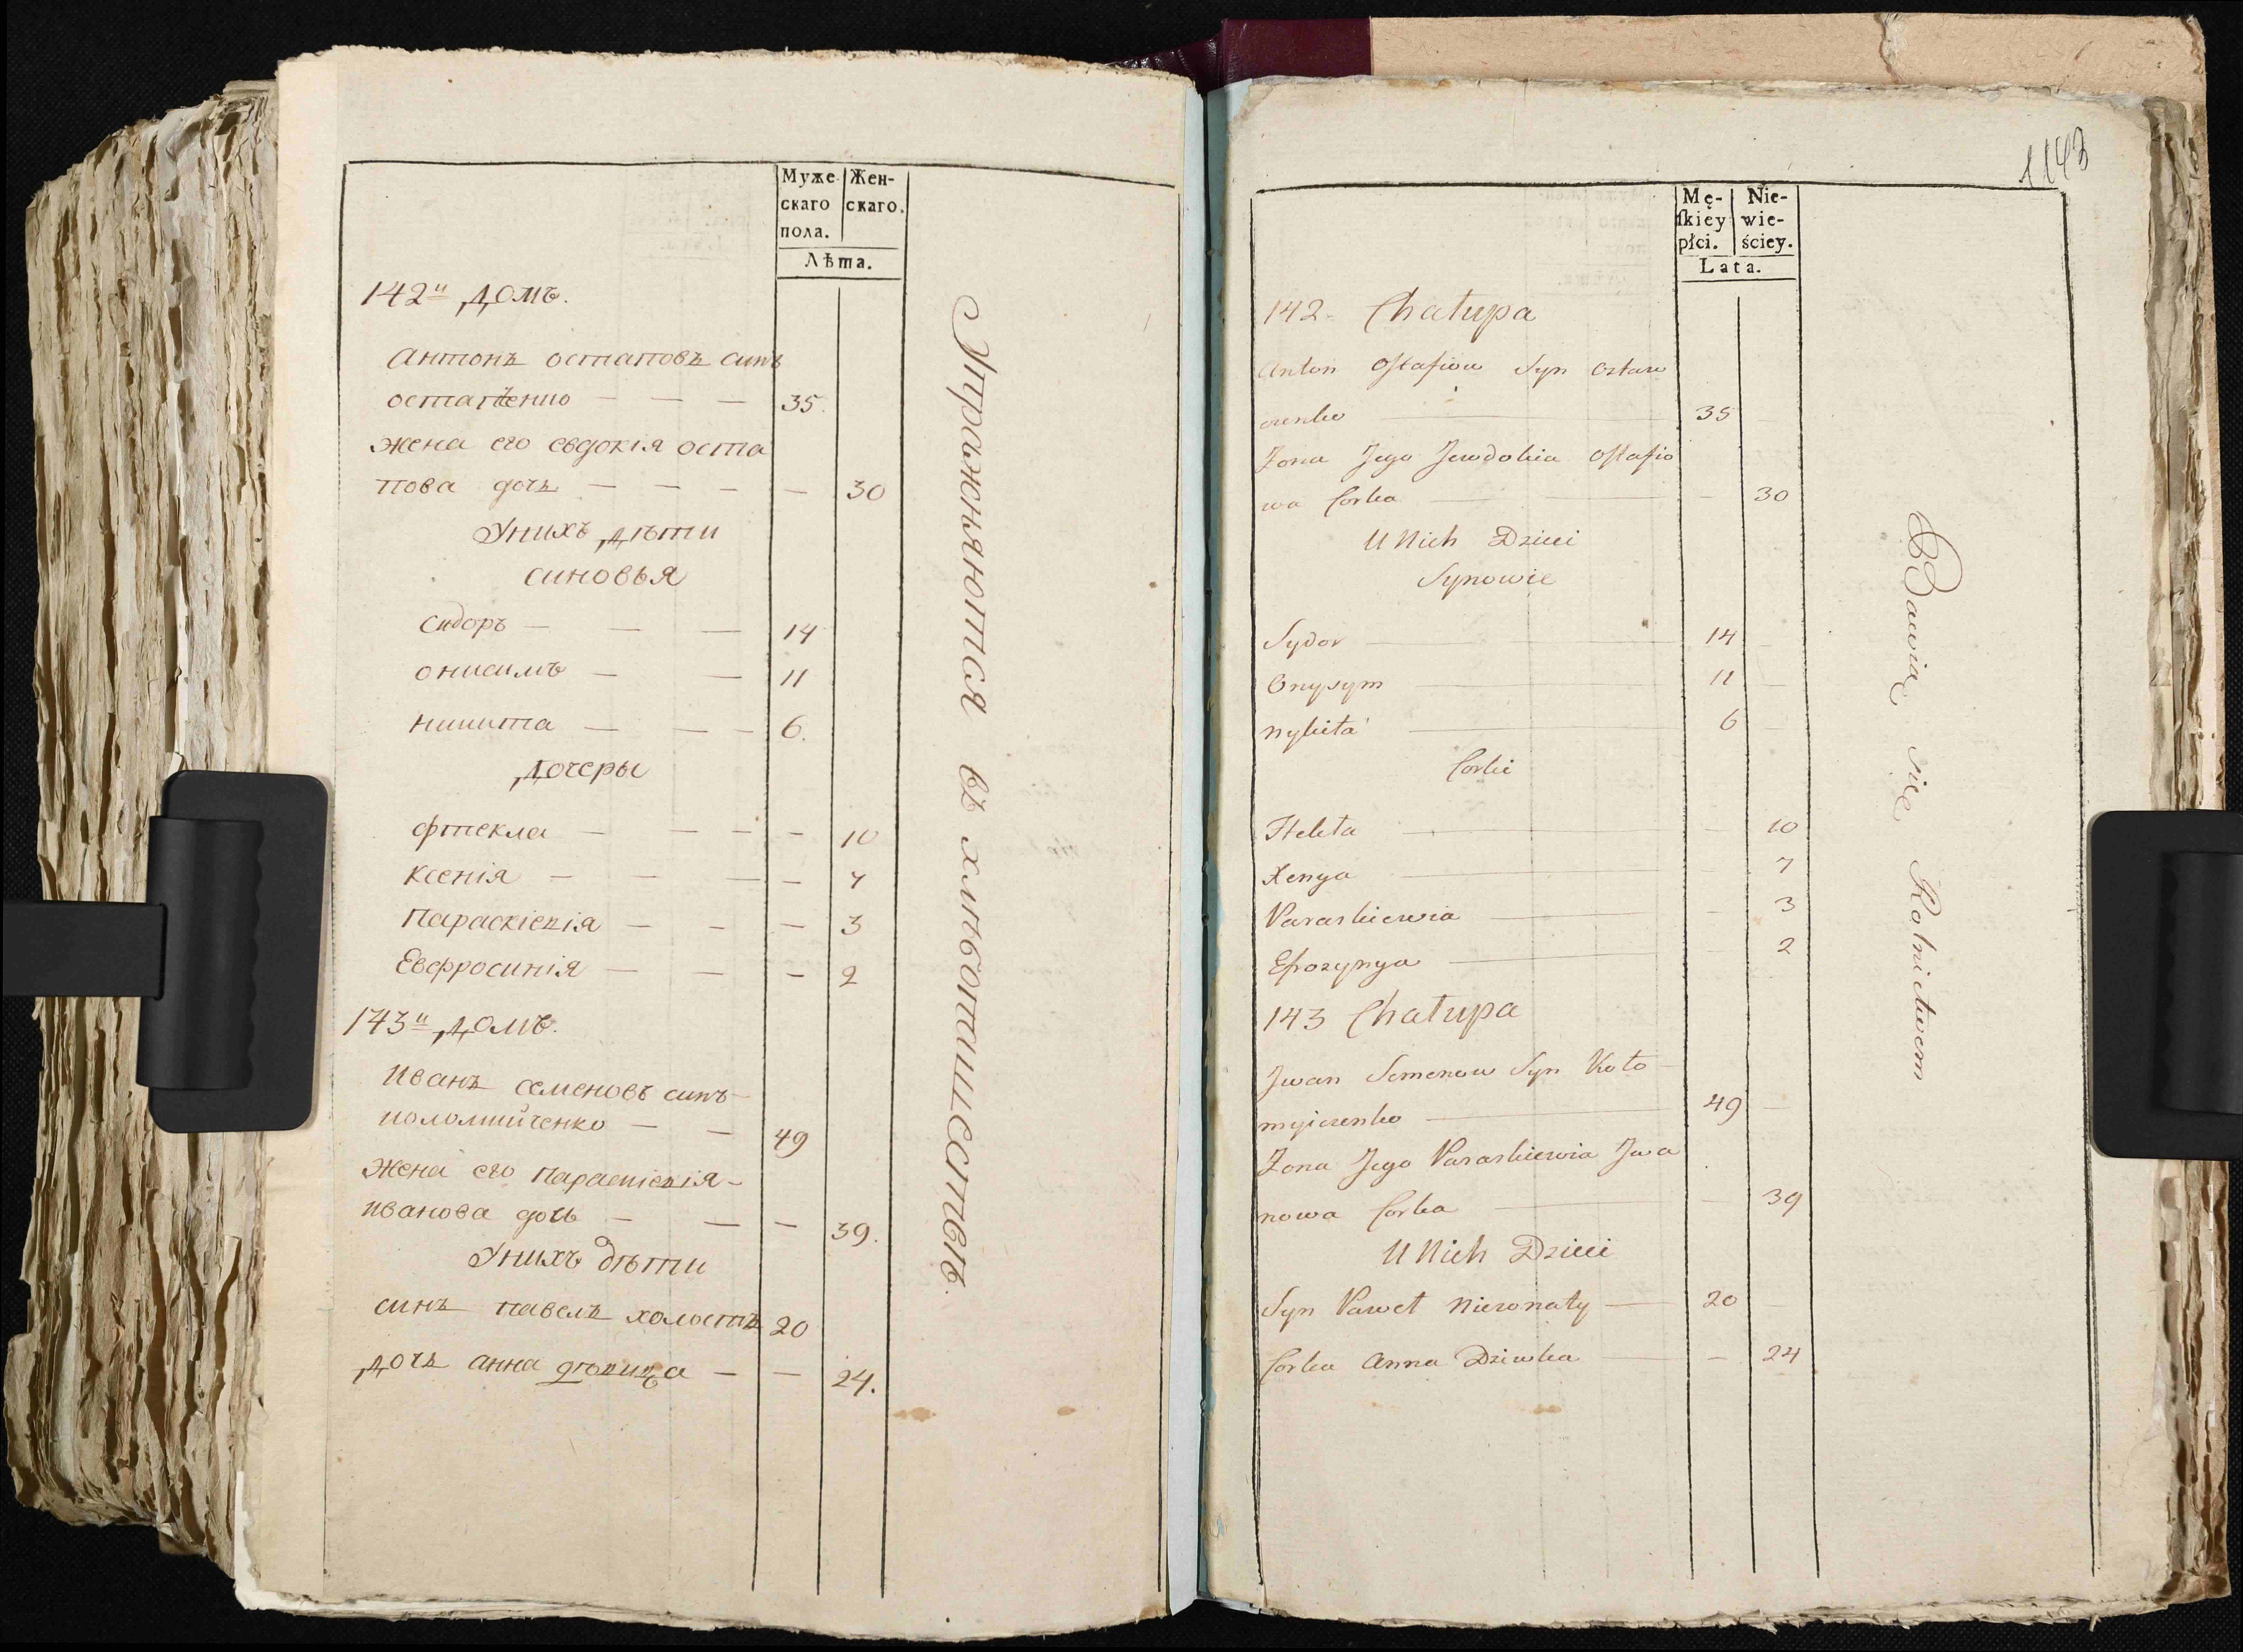 Муже
скаго
пола.
Жен-
скаго.
Лѣта.
142й домъ.
Антонъ остаповъ синъ
остапѣенко — — — 35.
жена его евдокія оста
пова дочь — — — — 30
Унихъ дѣти
синовья
Сидоръ — — — 14
онисимъ — — 11
никита — — — 6.
дочеры
фтекла — — — — 10
ксенія — — — — 7
Параскіевія — — — 3
Евфросинія — — — 2
143й домъ.
Иванъ семеновъ синъ
коломийченко — — 49
жена его параскіевія
иванова дочь — — — 39.
Унихъ дѣти
синъ павелъ холостъ 20
дочь анна дѣвица — — 24.
Упражняются въ хлѣбопашествѣ.
1143
Mę-
ſkiey
płci.
Nie-
wie-
ściey.
Lata.
142. Chałupa
Anton Ostafiow Syn Ostaw
czenko 35
Zona Jego Jewdokia Ostafio
wa Corka — 30
U Nich Dzieci
Synowie
Sydor 14
Onysym 11
Nykita 6
Corki
Ftekła — 10
Xenya — 7
Paraskiewia — 3
Efrozynya — 2
143 Chałupa
Jwan Semenow Syn Koło
myiczenko 49
Zona Jego Paraskiewia Jwa
nowa Corka — 39
U Nich Dzieci
Syn Paweł Niezonaty — 20
Corka Anna Dziewka — 24
Bawią się Rolnictwem